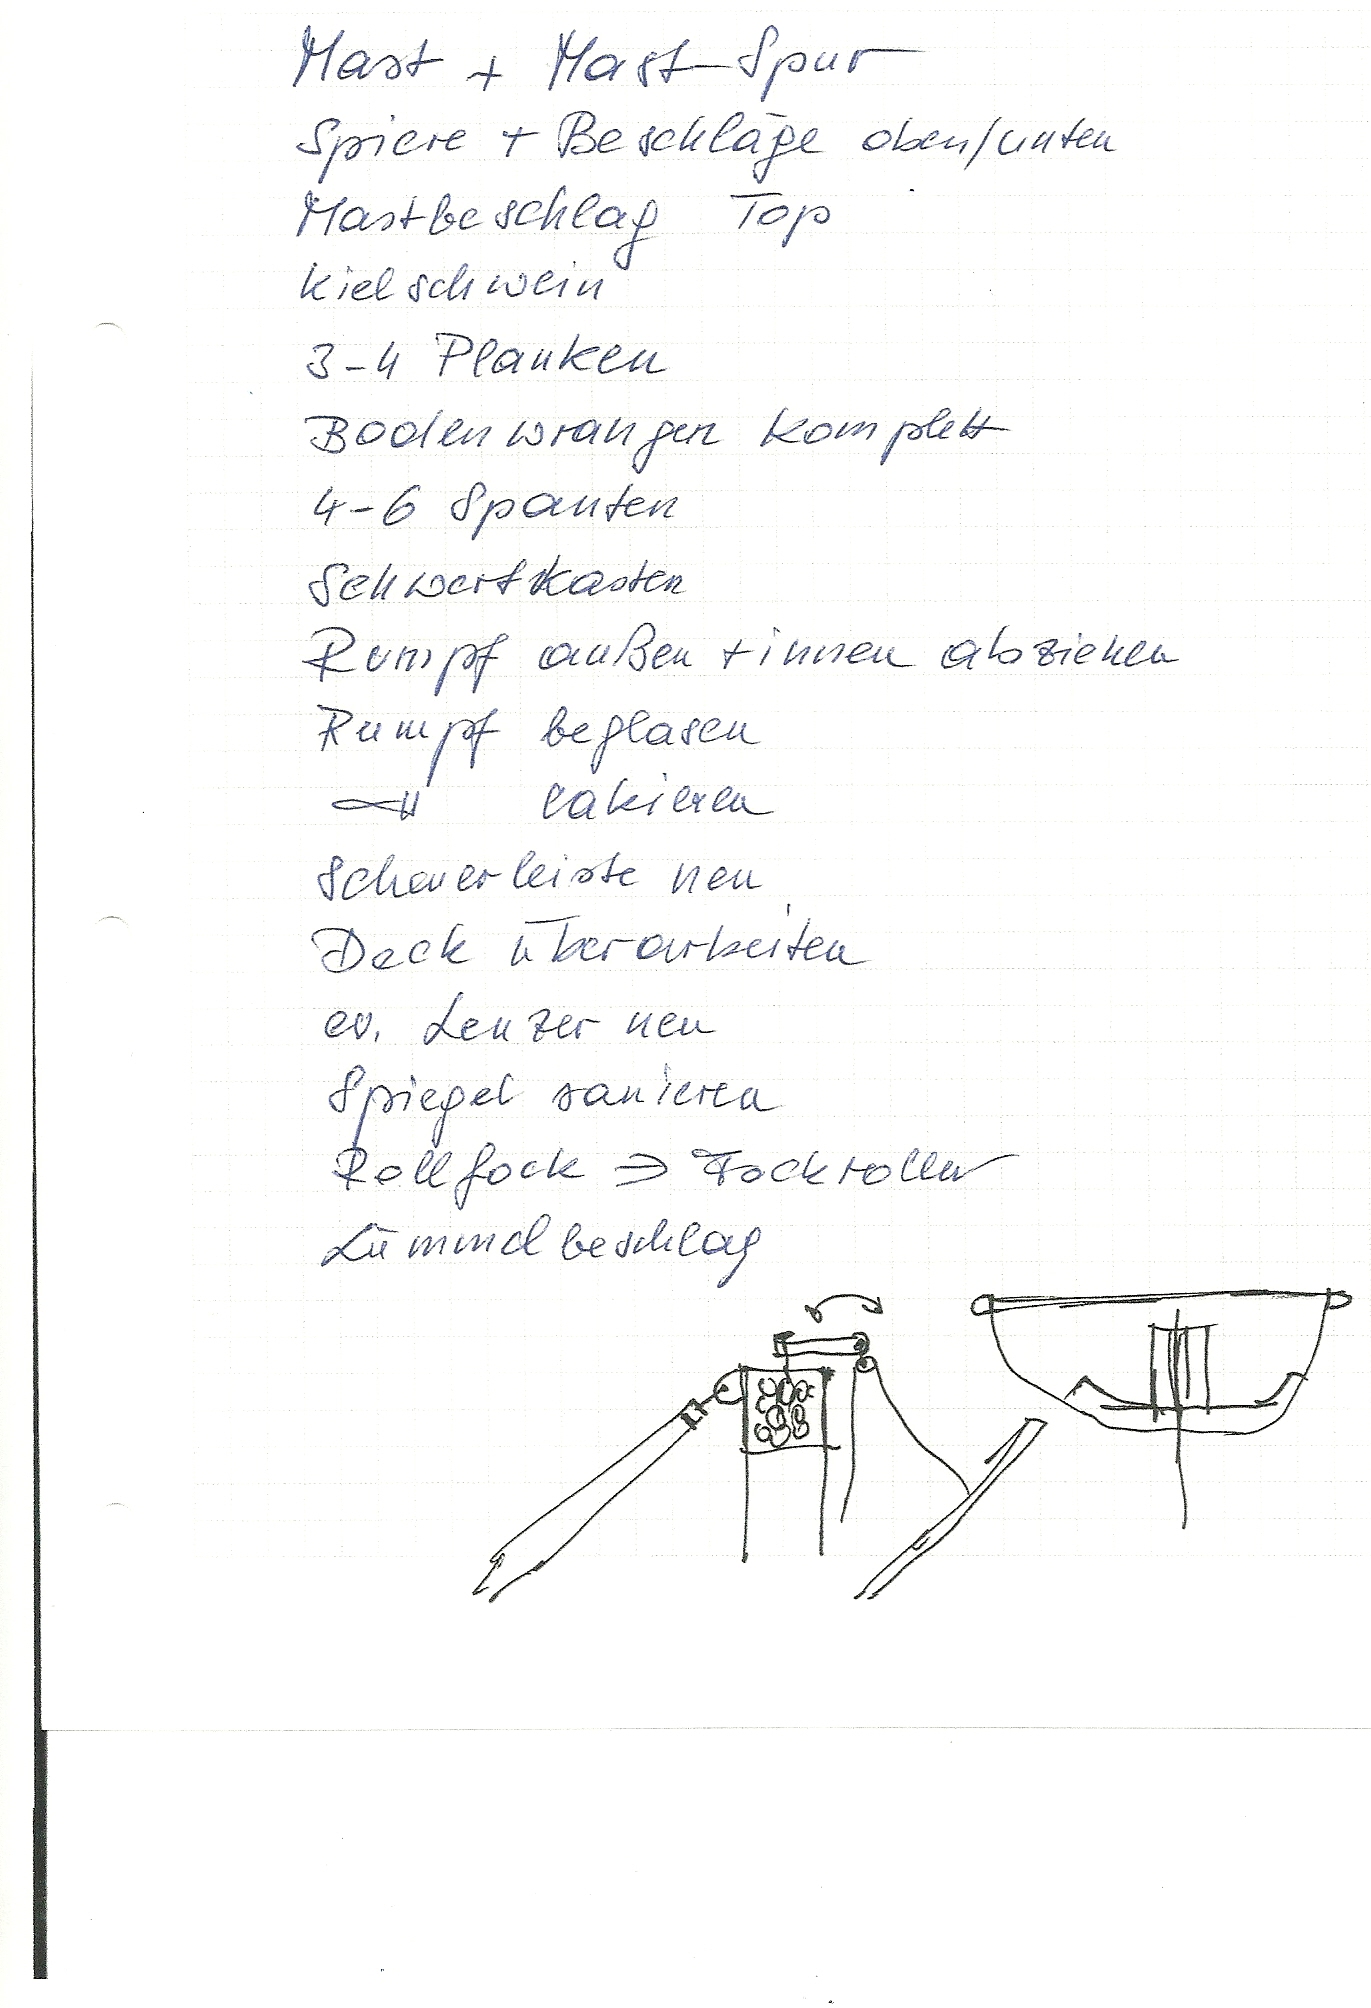 Mast + Mast-Spur
Spiere + Beschläge oben/unten
Mastbeschlag Top
Kielschwein
3-4 Planken
Bodenwrangen komplett
4-6 Spanten
Schwertkasten
Rumpf außen + innen abziehen
Rumpf beglasen
—"— lakieren
Scheuerleiste neu
Deck überarbeiten
ev. Lenzer neu
Spiegel sanieren
Rollfock ⇒ Fockroller
Lümmelbeschlag